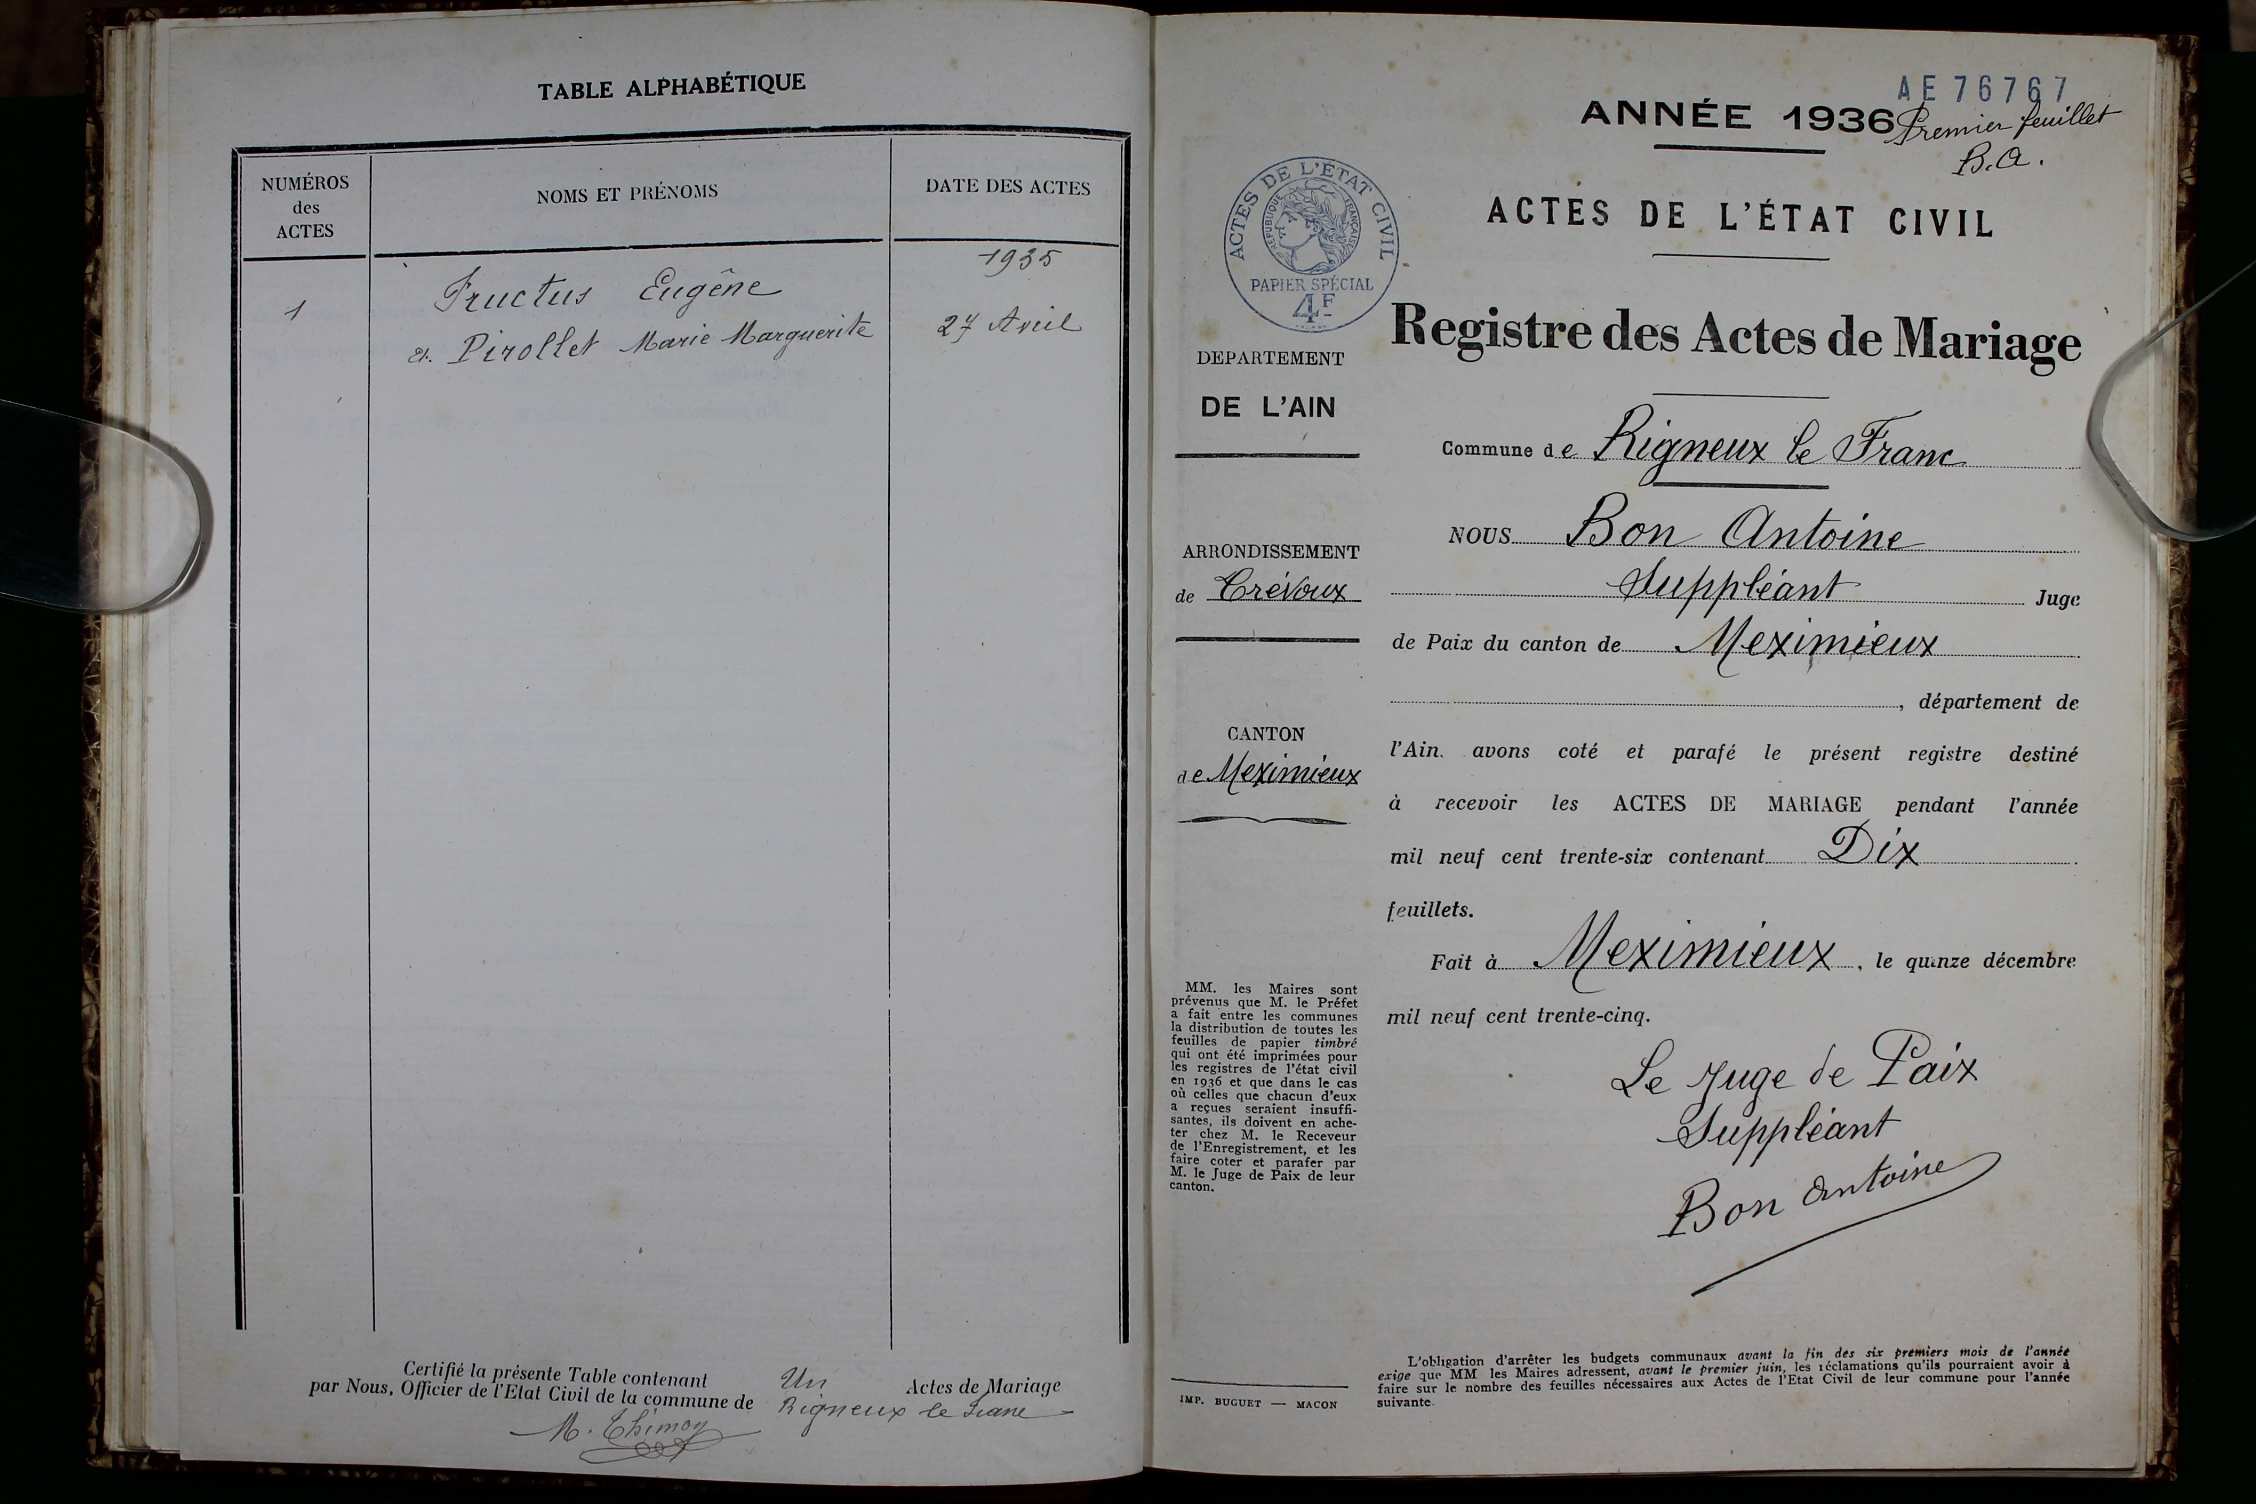 TABLE ALPHABÉTIQUE
NUMÉROS
des
ACTES
NOMS ET PRÉNOMS
DATE DES ACTES
1935
1
Fructus Eugêne
et Pirollet Marie Marguerite
27 Avril
Certifié la présente Table contenant Un Actes de Mariage
par Nous, Officier de l'Etat Civil de la commune de Rigneux le Franc
M. Thimoy
AE 76767
ANNÉE 1936
Premier feuillet
B. A.
ACTES DE L'ÉTAT CIVIL
ACTES DE L'ETAT CIVIL
REPUBLIQUE FRANÇAISE
PAPIER SPÉCIAL
4F
Registre des Actes de Mariage
DEPARTEMENT
DE L'AIN
ARRONDISSEMENT
de Trévoux
CANTON
de Meximieux
MM. les Maires sont
prévenus que M. le Préfet
a fait entre les communes
la distribution de toutes les
feuilles de papier timbré
qui ont été imprimées pour
les registres de l'état civil
en 1936 et que dans le cas
où celles que chacun d'eux
a reçues seraient insuffi-
santes, ils doivent en ache-
ter chez M. le Receveur
de l'Enregistrement, et les
faire coter et parafer par
M. le Juge de Paix de leur
canton.
IMP. BUGUET — MACON
Commune de Rigneux le Franc
NOUS Bon Antoine
Suppléant Juge
de Paix du canton de Meximieux
, département de
l'Ain. avons coté et parafé le présent registre destiné
à recevoir les ACTES DE MARIAGE pendant l'année
mil neuf cent trente-six contenant Dix
feuillets.
Fait à Meximieux, le quinze décembre
mil neuf cent trente-cinq.
Le Juge de Paix
Suppléant
Bon Antoine
L'obligation d'arrêter les budgets communaux avant la fin des six premiers mois de l'année
exige que MM les Maires adressent, avant le premier juin, les réclamations qu'ils pourraient avoir à
faire sur le nombre des feuilles nécessaires aux Actes de l'Etat Civil de leur commune pour l'année
suivante.